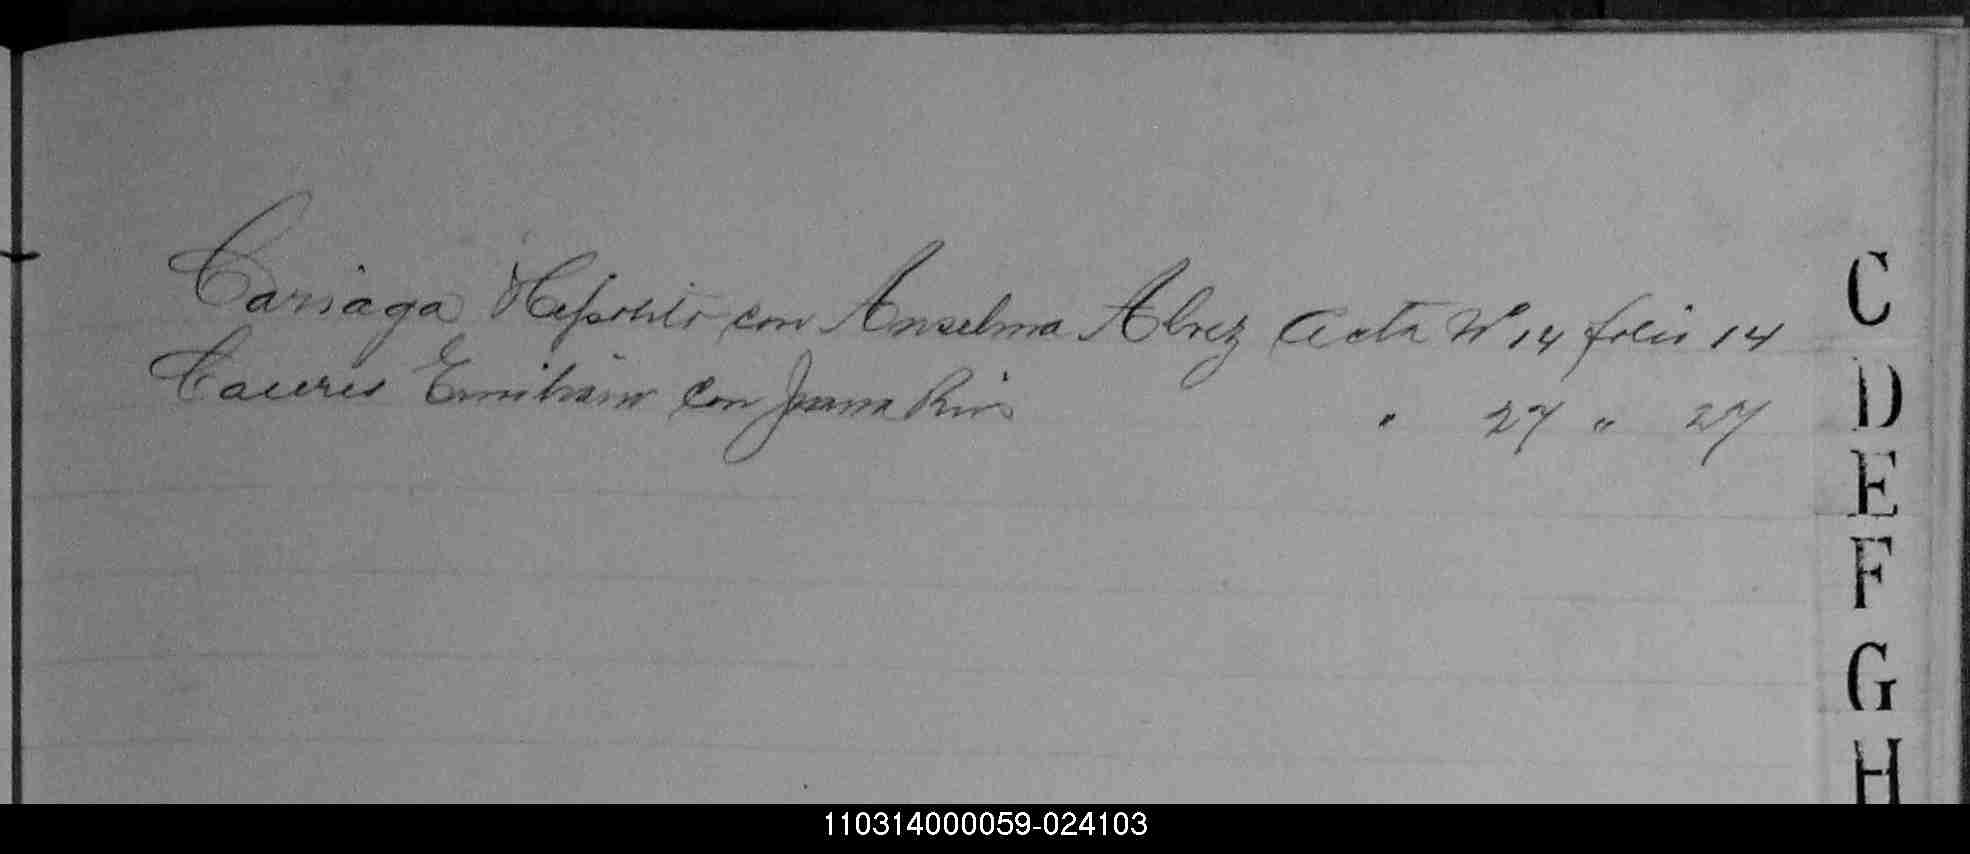 Cariaga Hipolito con Anselma Alvez Acta Nº 14 folio 14
Caceres Emiliano con Juana Rios " 27 " 27
C
D
E
F
G
H
110314000059-024103